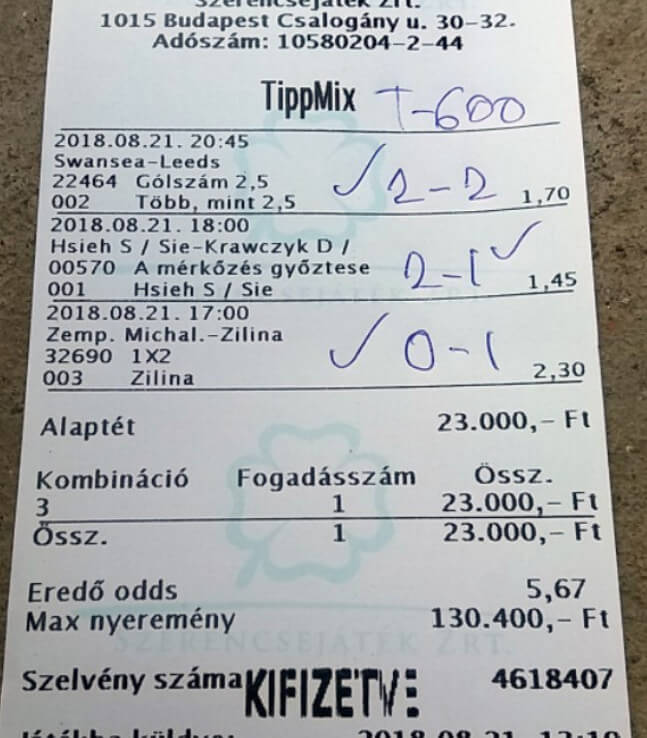 Szerencsejáték Zrt.
1015 Budapest Csalogány u. 30-32.
Adószám: 10580204-2-44
TippMix T-600
2018.08.21. 20:45
Swansea-Leeds
22464 Gólszám 2,5
002 Több, mint 2,5 2-2 1,70
2018.08.21. 18:00
Hsieh S / Sie-Krawczyk D /
00570 A mérkőzés győztese 2-1
001 Hsieh S / Sie 1,45
2018.08.21. 17:00
Zemp. Michal.-Zilina
32690 1X2 0-1
003 Zilina 2,30
Alaptét 23.000,- Ft
Kombináció Fogadásszám Össz.
3 1 23.000,- Ft
Össz. 1 23.000,- Ft
Eredő odds 5,67
Max nyeremény 130.400,- Ft
SZERENCSEJÁTÉK ZRT.
Szelvény száma KIFIZETVE 4618407
2018.08.21. 12:10